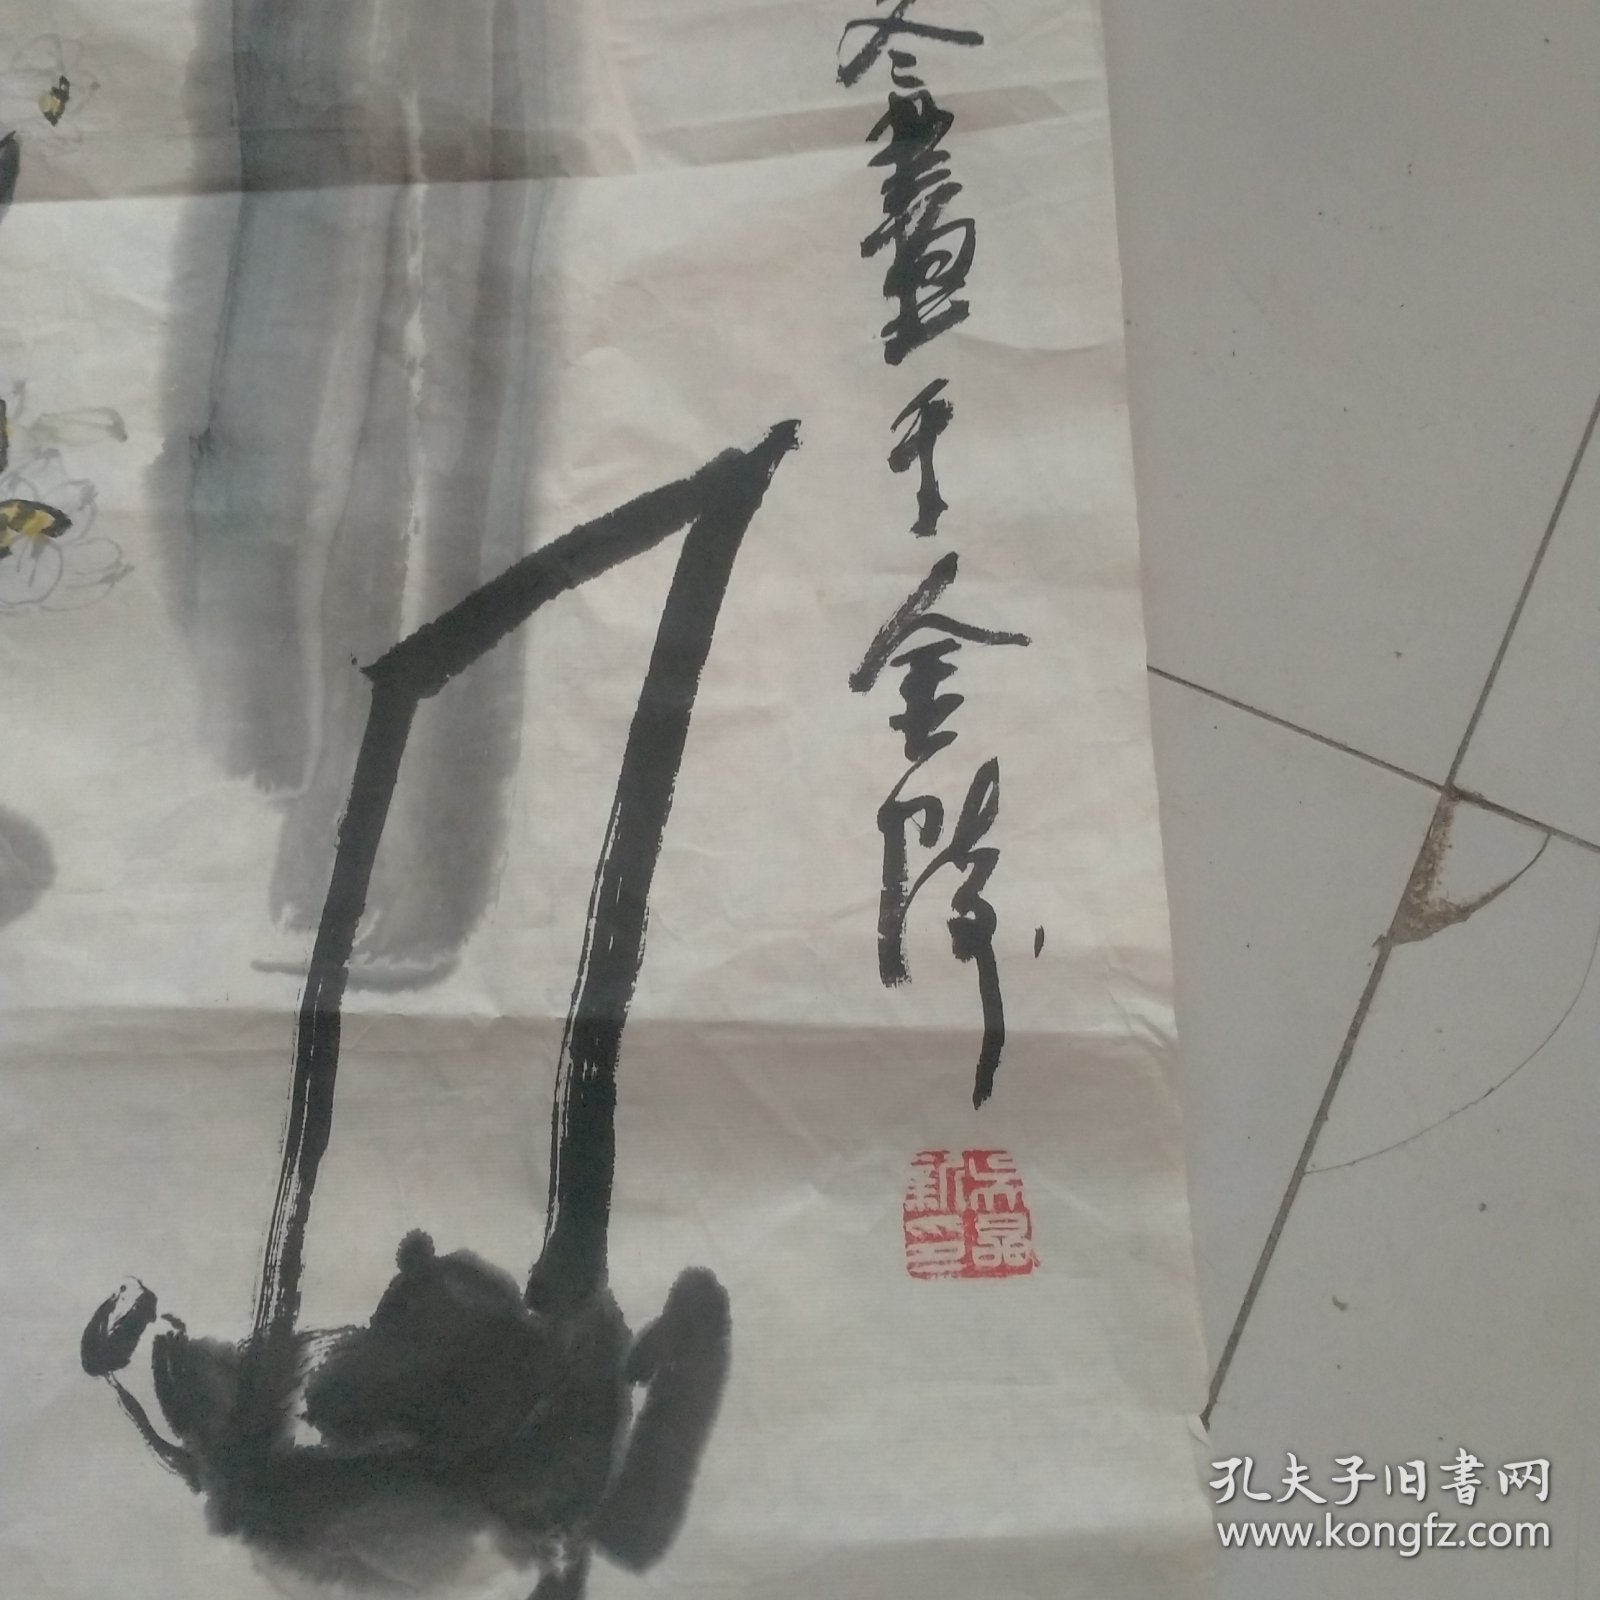 冬畫于金陵
孔夫子旧書网
www.kongfz.com